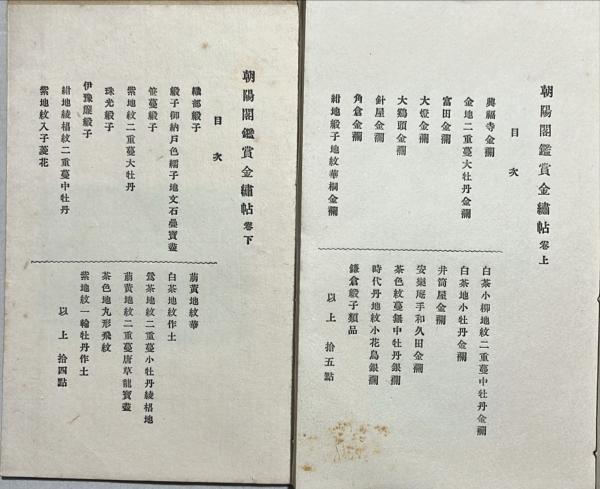 朝陽閣鑑賞金繡帖 卷上
目次
興福寺金襴
金地二重蔓大牡丹金襴
富田金襴
大燈金襴
大鷄頭金襴
針屋金襴
角倉金襴
紺地緞子地紋華桐金襴
白茶小柳地紋二重蔓中牡丹金襴
白茶地小牡丹金襴
井筒屋金襴
安樂庵手和久田金襴
茶色紋蔓無中牡丹銀襴
時代丹地紋小花鳥銀襴
鎌倉緞子類品
以上拾五點
朝陽閣鑑賞金繡帖 卷下
目次
織部緞子
緞子御納戸色繻子地文石疊寶盡
笹蔓緞子
紫地紋二重蔓大牡丹
珠光緞子
伊豫簾緞子
紺地綾梠紋二重蔓中牡丹
紫地紋入子菱花
萠黃地紋華
白茶地紋作土
鶯茶地紋二重蔓小牡丹綾梠地
萠黃地紋二重蔓唐草龍寶盡
茶色地丸形飛紋
紫地紋一輪牡丹作土
以上拾四點